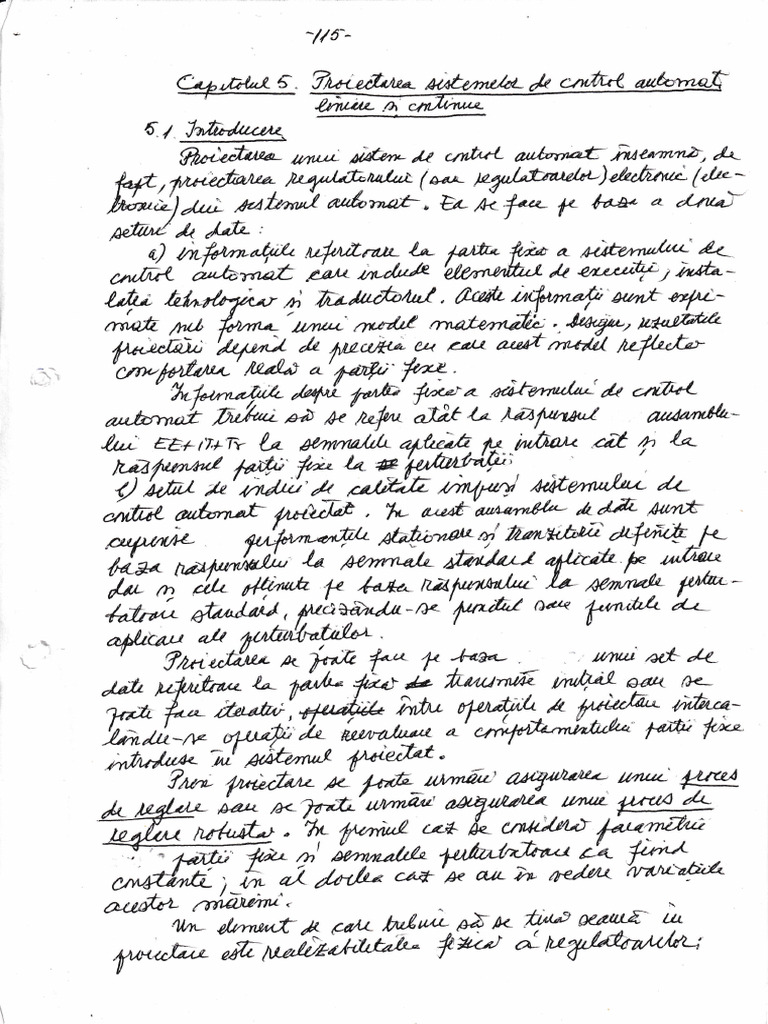 -115-
Capitolul 5. Proiectarea sistemelor de control automat
liniare și continue
5.1. Introducere
Proiectarea unui sistem de control automat înseamnă, de
fapt, proiectarea regulatorului (sau regulatoarelor) electronic (elec-
tronice) din sistemul automat. Ea se face pe baza a două
seturi de date:
a) informațiile referitoare la partea fixă a sistemului de
control automat care include elementul de execuție, insta-
lația tehnologică și traductorul. Aceste informații sunt expri-
mate sub forma unui model matematic. Desigur, rezultatele
proiectării depind de precizia cu care acest model reflectă
comportarea reală a părții fixe.
Informațiile despre partea fixă a sistemului de control
automat trebuie să se refere atât la răspunsul ansamblu-
lui EE+IT+Tr la semnalele aplicate pe intrare cât și la
răspunsul părții fixe la perturbații
b) setul de indici de calitate impuși sistemului de
control automat proiectat. In acest ansamblu de date sunt
cuprinse performanțele staționare și tranzitorii definite pe
baza răspunsului la semnale standard aplicate pe intrare
dar și cele obținute pe baza răspunsului la semnale pertur-
batoare standard, precizându-se punctul sau punctele de
aplicare ale perturbațiilor.
Proiectarea se poate face pe baza unui set de
date referitoare la partea fixă transmise inițial sau se
poate face iterativ, operațiile între operațiile de proiectare interca-
lându-se operații de reevaluare a comportamentului părții fixe
introduse în sistemul proiectat.
Prin proiectare se poate urmări asigurarea unui proces
de reglare sau se poate urmări asigurarea unui proces de
reglare robustă. In primul caz se consideră parametrii
părții fixe și semnalele perturbatoare ca fiind
constante; în al doilea caz se au în vedere variațiile
acestor mărimi.
Un element de care trebuie să se țină seamă în
proiectare este realizabilitatea fizică a regulatoarelor;